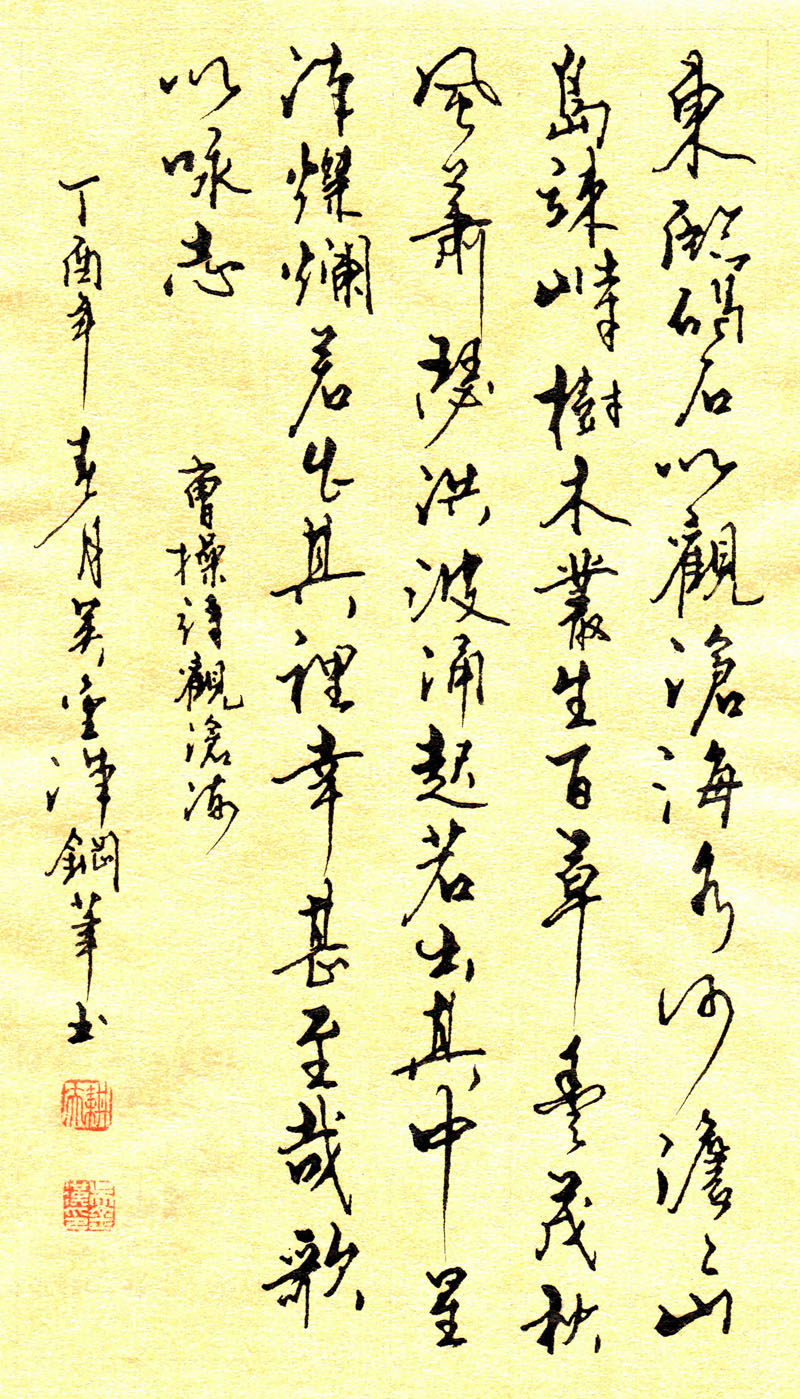 東臨碣石以觀滄海水何澹々山
島竦峙樹木叢生百草豐茂秋
風蕭瑟洪波涌起若出其中星
漢燦爛若出其裡幸甚至哉歌
以咏志
曹操詩觀滄海
丁酉年春月吴漢鋼筆书